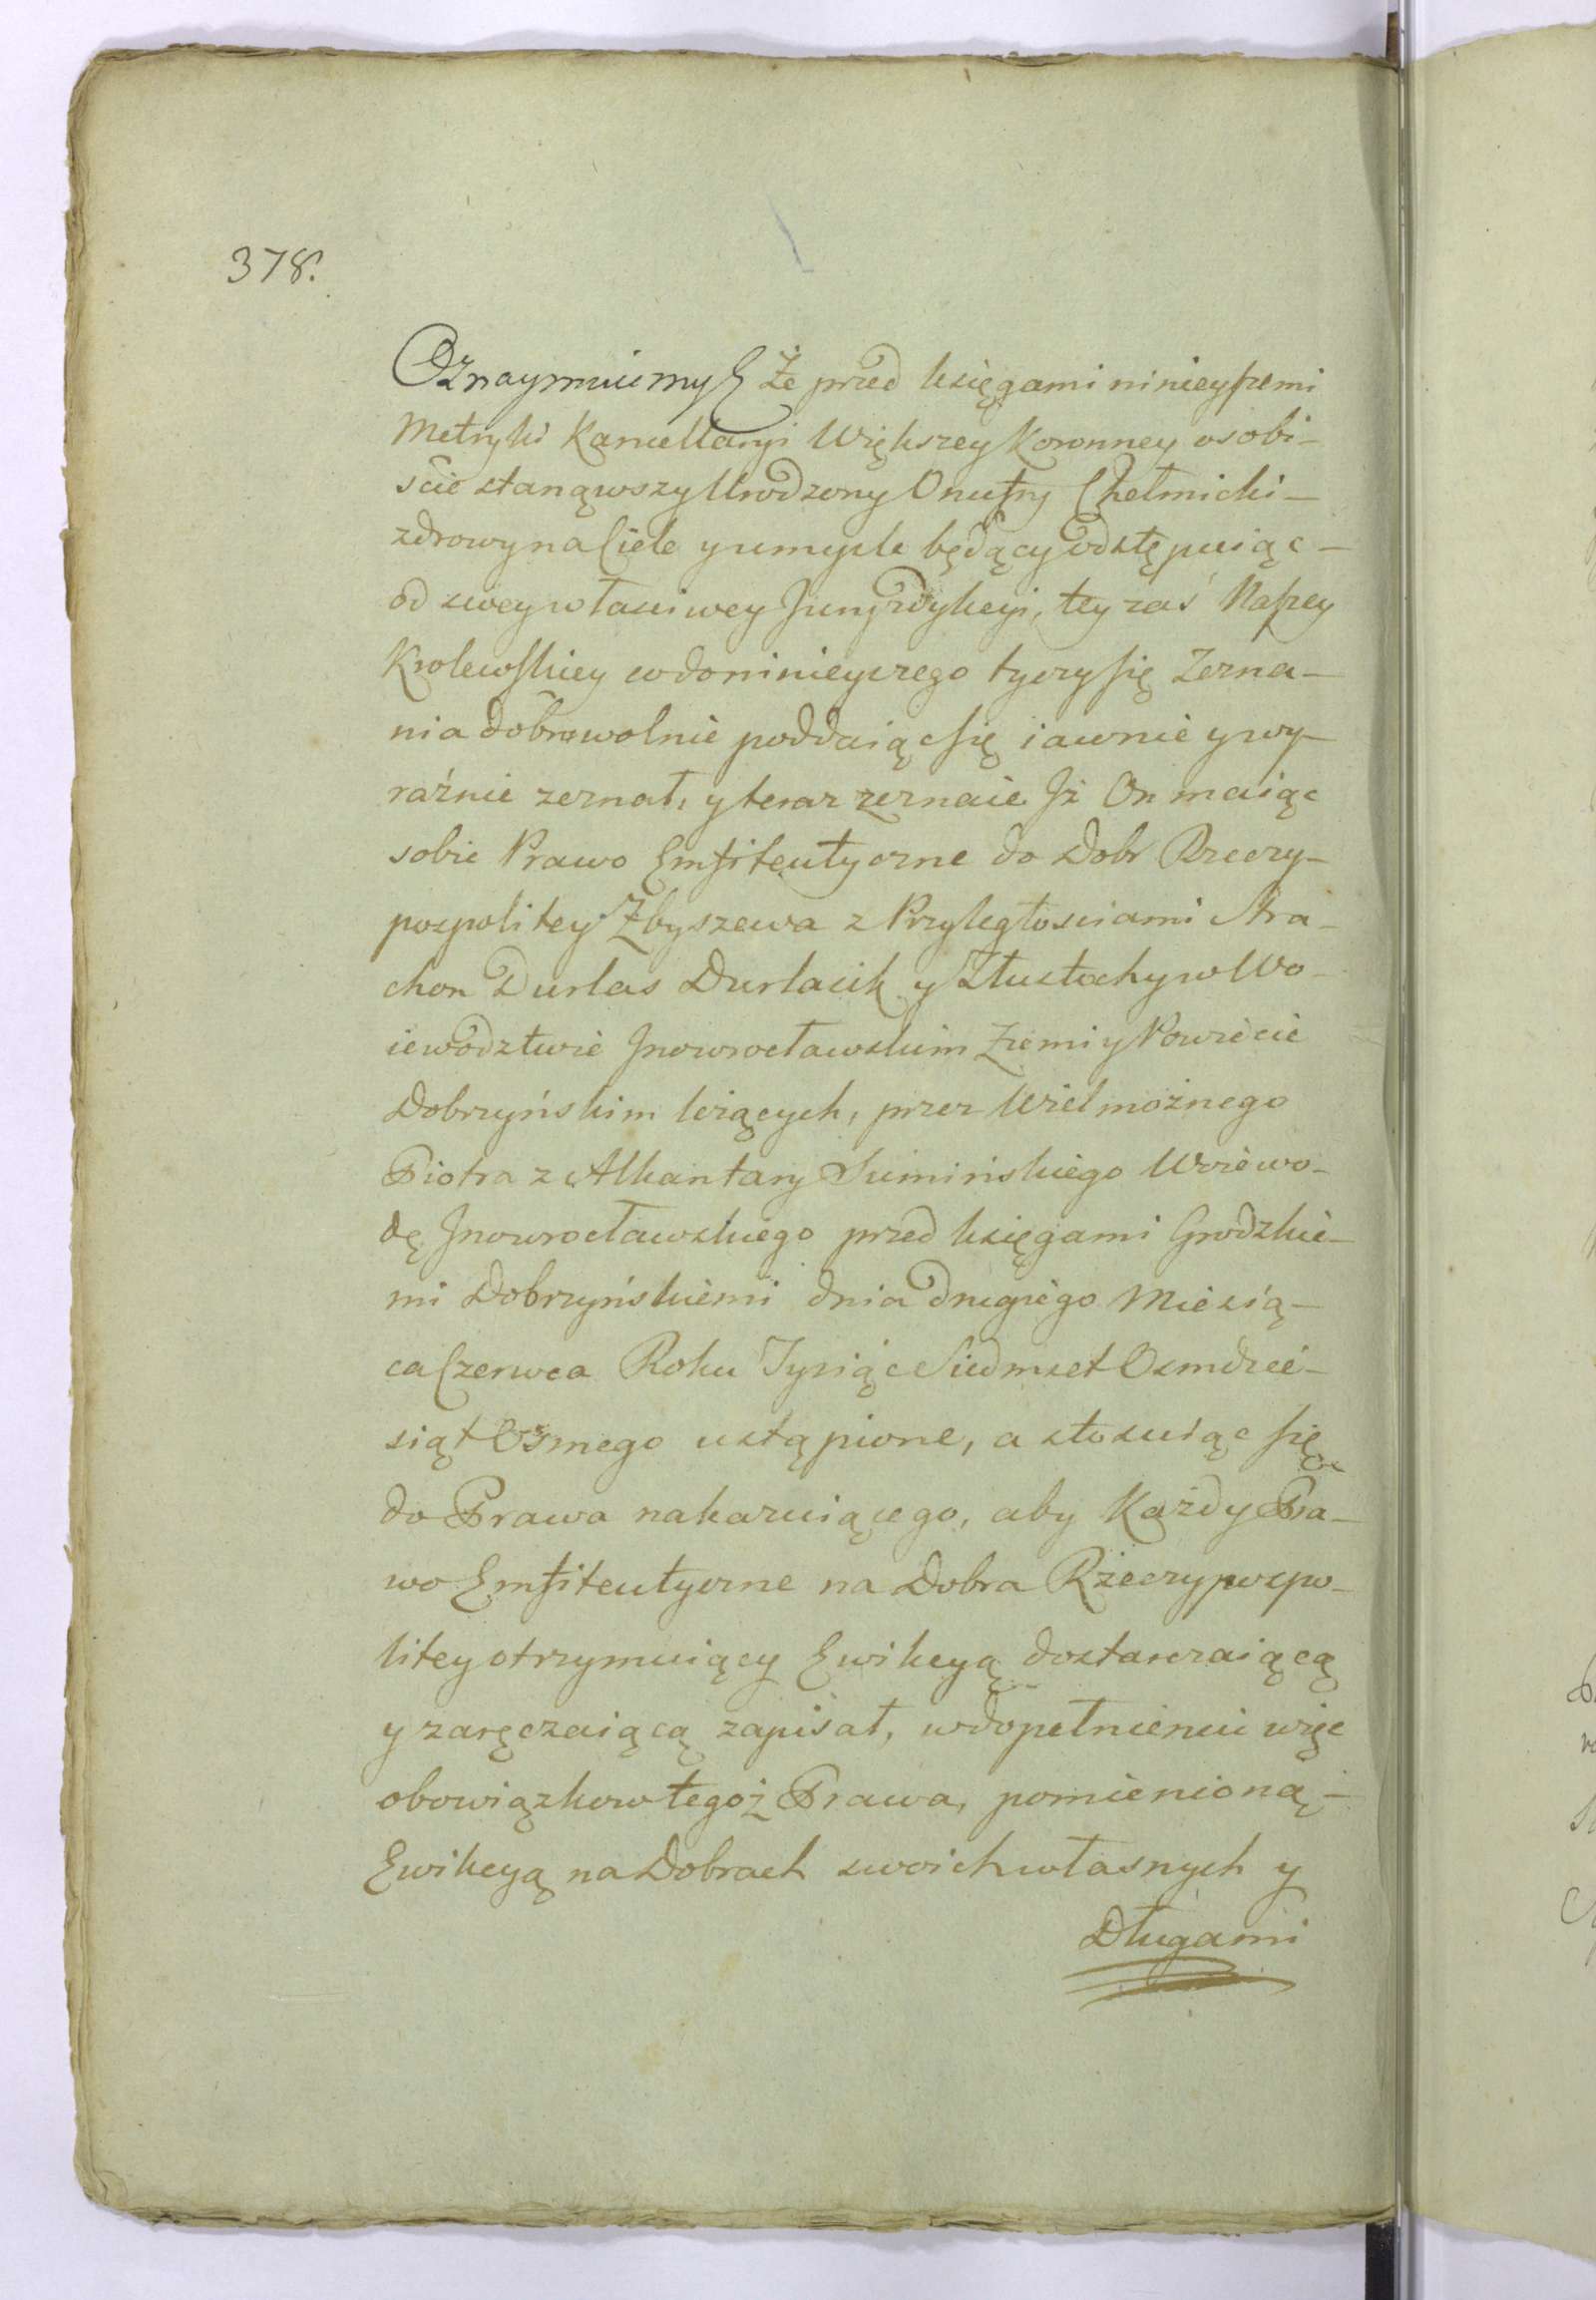 378.
Oznaymuiemy Że przed księgami ninieyszemi
Metryki Kancellaryi Większey Koronney osobi-
ście stanąwszy Urodzony Onufry Chełmicki-
zdrowy na Ciele y umyśle będący odstępuiąc-
od swey właściwey Juryzdykcyi, tey zaś Naszey
Krolewskiey co do ninieyszego tyczy się Zezna-
nia dobrowolnie poddaiąc się iawnie y wy-
raźnie zeznał, y teraz zeznaie Jż On maiąc
sobie Prawo Emfiteutyczne do Dobr Rzeczy-
pospolitey Zbyszewa z Przyległosciami Stra-
chon Durlas Durlasik y Złustochy w Wo-
iewodztwie Jnowrocławskim Ziemi y Powiecie
Dobrzyńskim leżących, przez Wielmożnego
Piotra z Alkantary Sumińskiego Woiewo-
dę Jnowrocławskiego przed księgami Grodzkie-
mi Dobrzyńskiemi dnia drugiego Miesią-
ca Czerwca Roku Tysiąc Siedmset Osmdzie-
siąt Osmego ustąpione, a stosuiąc się
do Prawa nakazuiącego, aby Każdy Pra-
wo Emfiteutyczne na Dobra Rzeczypospo-
litey otrzymuiący Ewikcyą dostarczaiącą
y zaręczaiącą zapisał, w dopełnieniu więc
obowiązkow tegoż Prawa, pomienioną-
Ewikcyą na Dobrach swoich własnych y
Długami